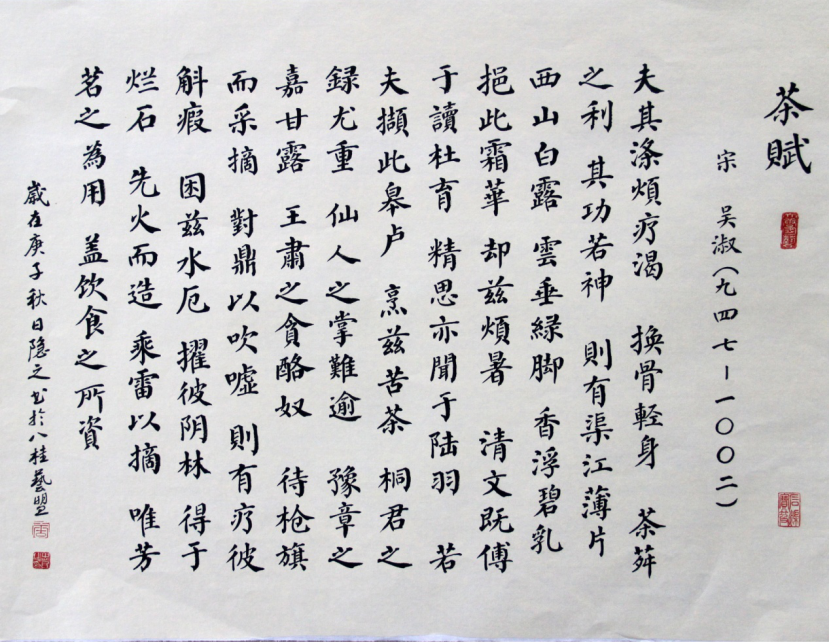 茶賦
宋 吴淑（九四七－一〇〇二）
夫其涤煩疗渴 换骨軽身 茶荈
之利 其功若神 則有渠江薄片
西山白露 雲垂緑脚 香浮碧乳
挹此霜華 却兹煩暑 清文既傅
于讀杜育 精思亦聞于陆羽 若
夫擷此皋卢 烹兹苦茶 桐君之
録尤重 仙人之掌難逾 豫章之
嘉甘露 王肅之貪酪奴 待枪旗
而采摘 對鼎以吹嘘 則有疗彼
斛瘕 困兹水厄 擢彼阴林 得于
烂石 先火而造 乘雷以摘 唯芳
茗之為用 盖饮食之所資
歲在庚子秋日隐之书於八桂藝盟